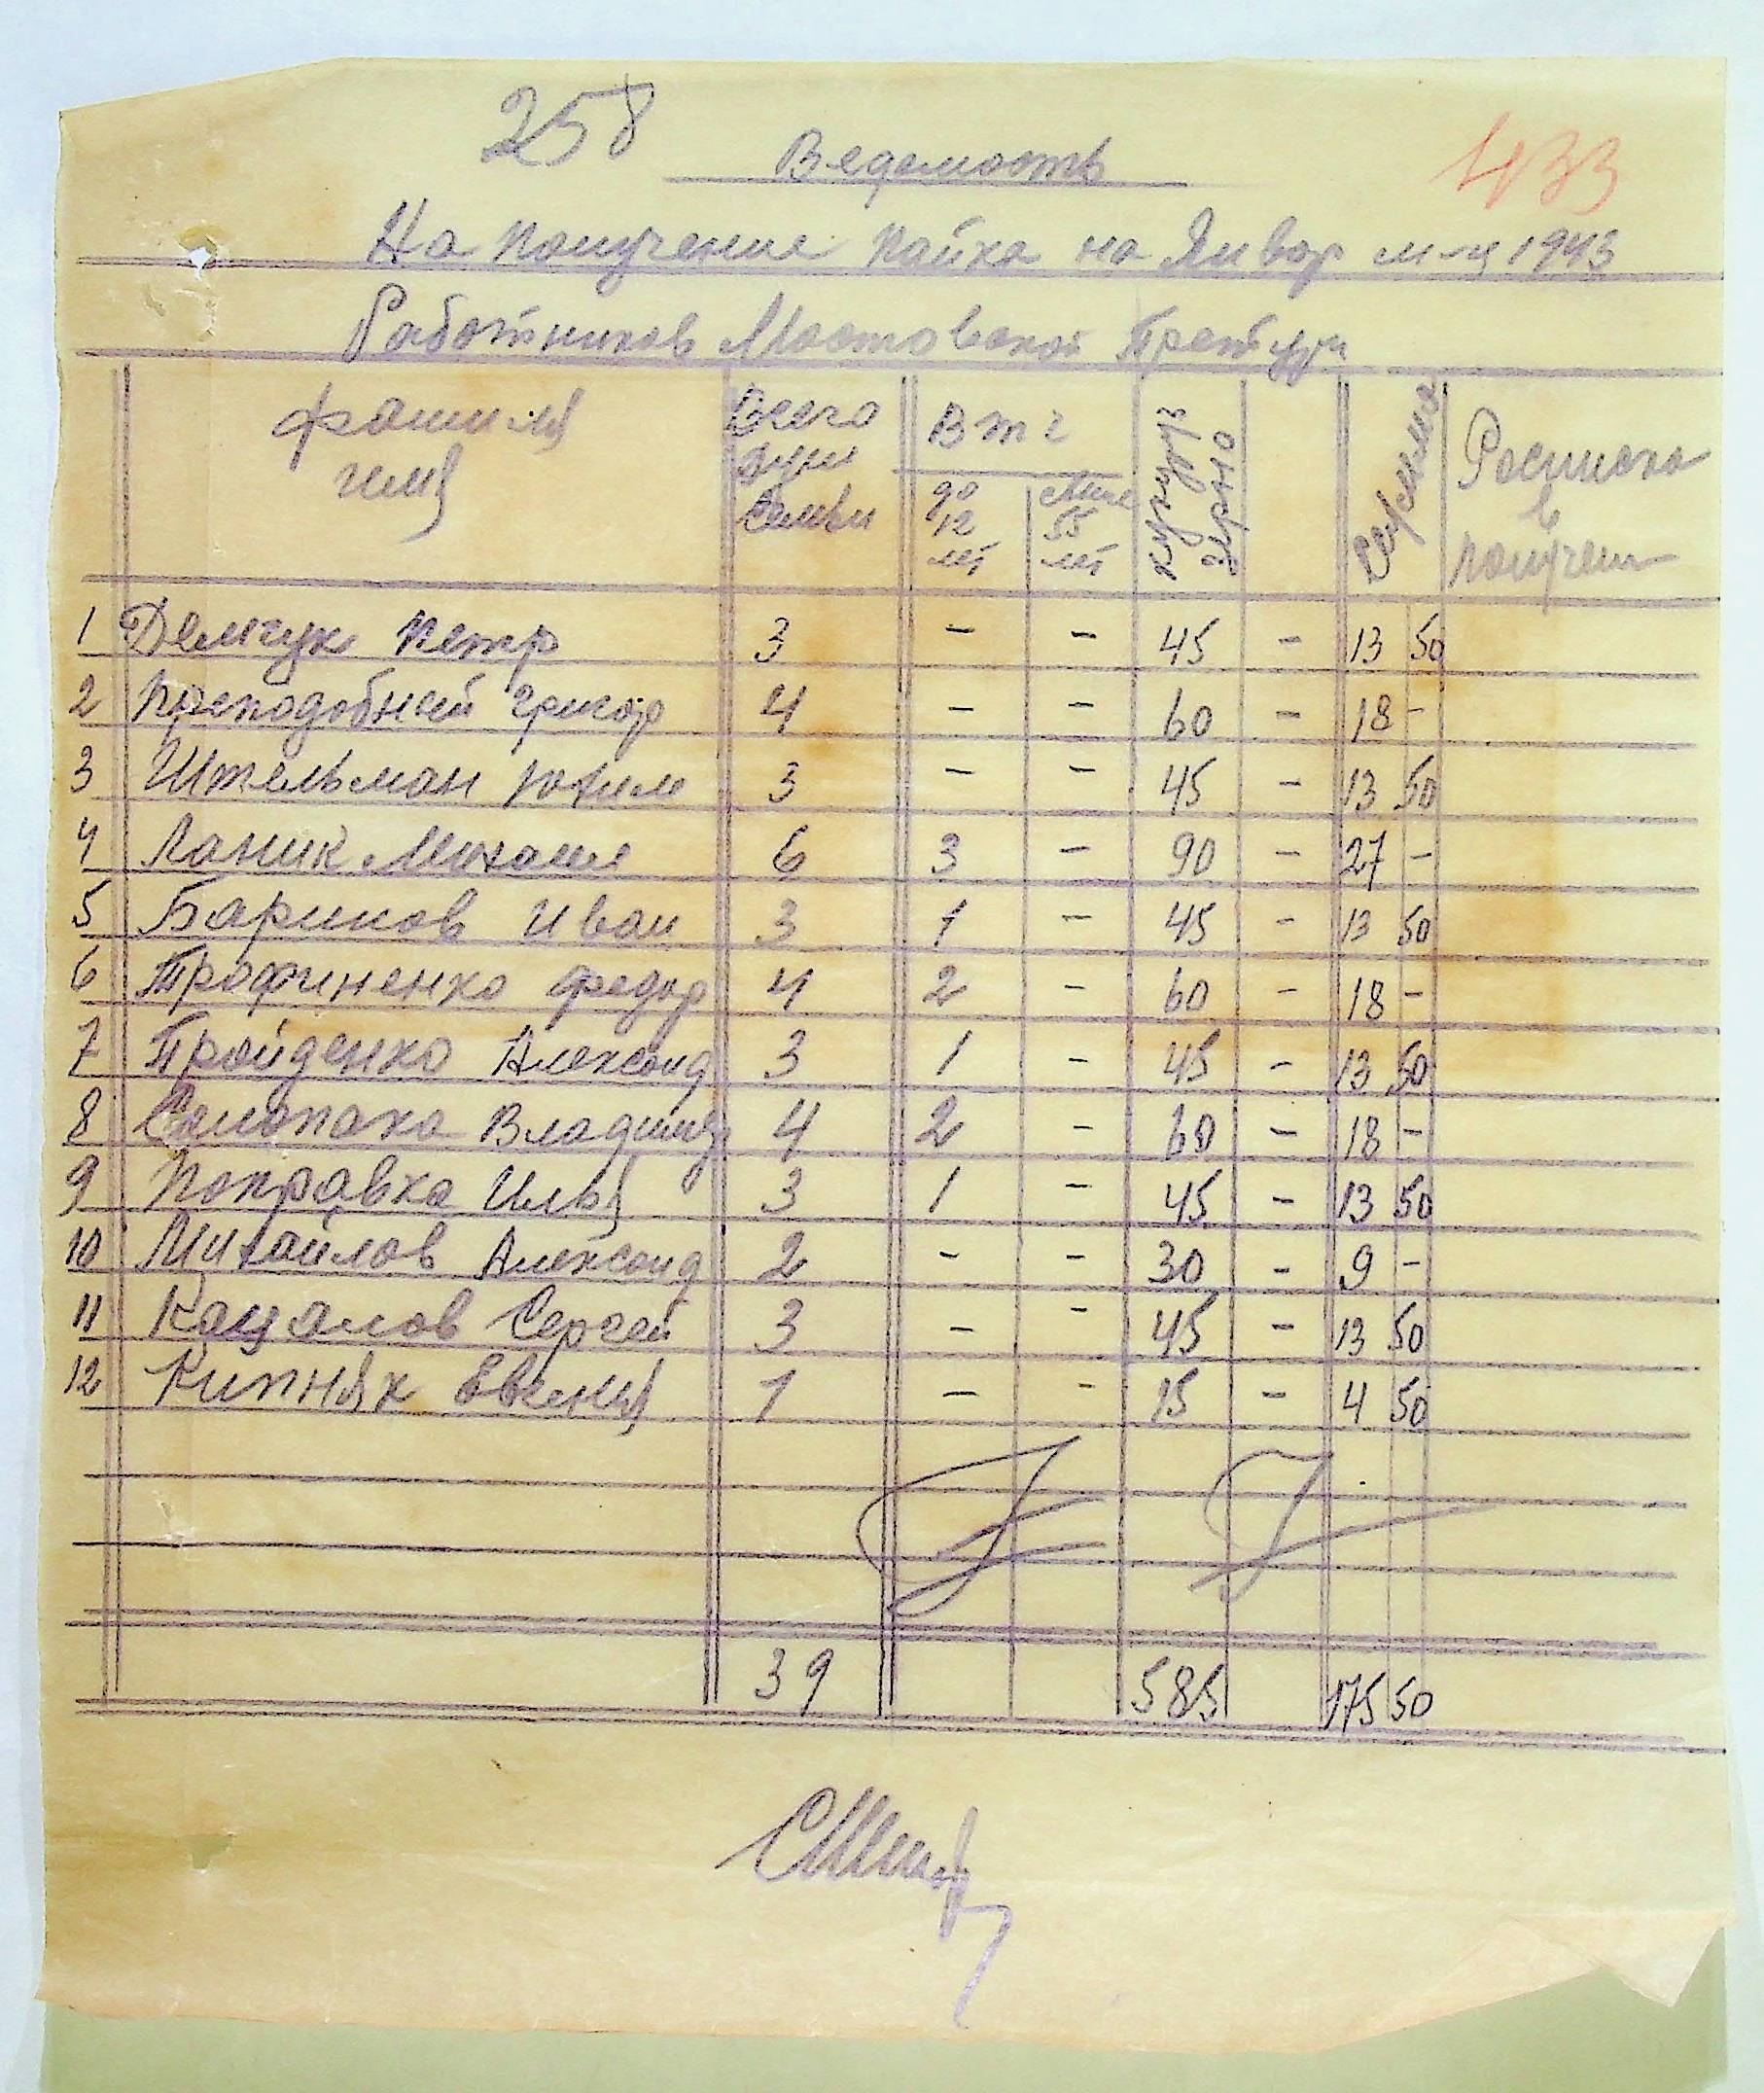 258
433
Ведомость
На получения пайка на Январ м-ц 1943
Работников Мостовской Претуры
Фамилия имя
Всего душ семьи
В т ч
до 12 лет
свыше 55 лет
кукуруз
Роспись в получен
1 Демчук Петр 3 - - 45 - 13 50
2 Преподобней Григор 4 - - 60 - 18 -
3 Штельман 3 - - 45 - 13 50
4 Ланик Михаил 6 3 - 90 - 27 -
5 Баринов Иван 3 1 - 45 - 13 50
6 Трофиненко Федор 4 2 - 60 - 18 -
7 Тройденко Александ 3 1 - 45 - 13 50
8 Владимир 4 2 - 60 - 18 -
9 Поправка Илья 3 1 - 45 - 13 50
10 Михайлов Александ 2 - - 30 - 9 -
11 Кацалов Сергей 3 - - 45 - 13 50
12 Кипняк Евгения 1 - - 15 - 4 50
39 585 175 50